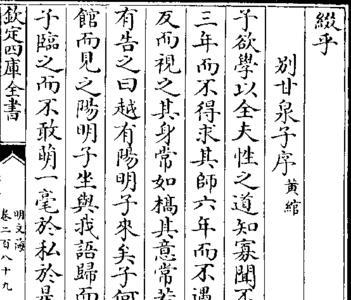 綴乎
别甘泉子序 黄綰
子欲學以全夫性之道知寡聞不
三年而不得求其師六年而不遇
反而視之其身常如槁其意常若
有告之曰越有陽明子來矣子何
館而見之陽明子坐與我語歸而
子臨之而不敢萌一毫於私於是
欽定四庫全書
明文海
卷二百八十九